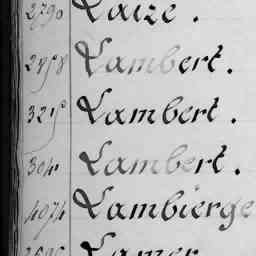 2790 Laize.
2858 Lambert.
3215 Lambert.
304 Lambert.
4074 Lambierge
Lamer